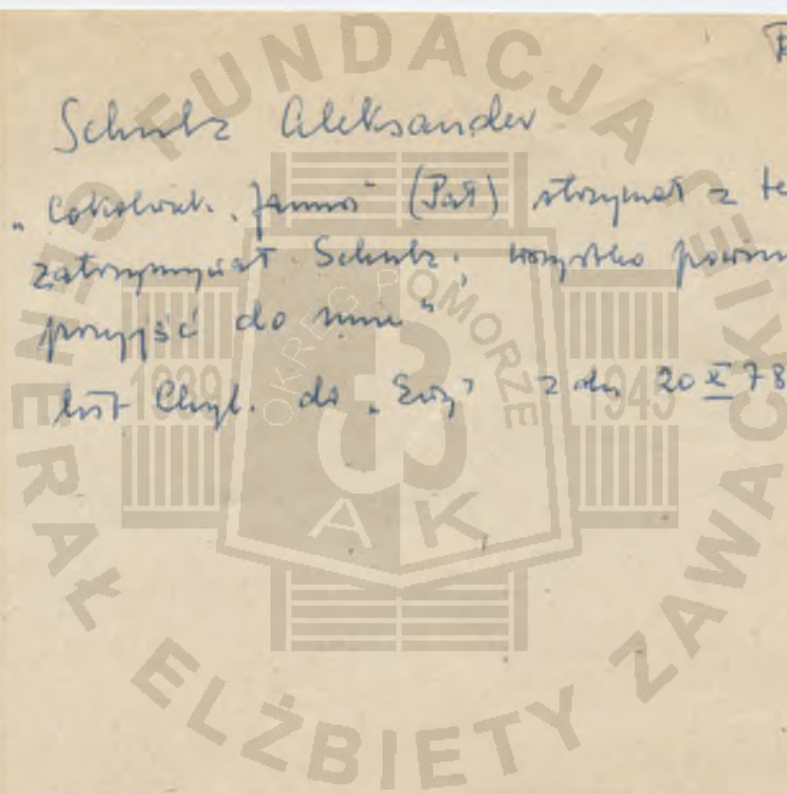 Schulz Aleksander
" Cokolwiek " (Pał) otrzymał z te
zatrzymywał Schulz, wszystko powinn
przyjść do mnie "
list Chyl. do "Ewy" z dn 20 X 78
FUNDACJA
GENERAŁ ELŻBIETY ZAWACKIEJ
OKRĘG POMORZE
1939 1945
A K